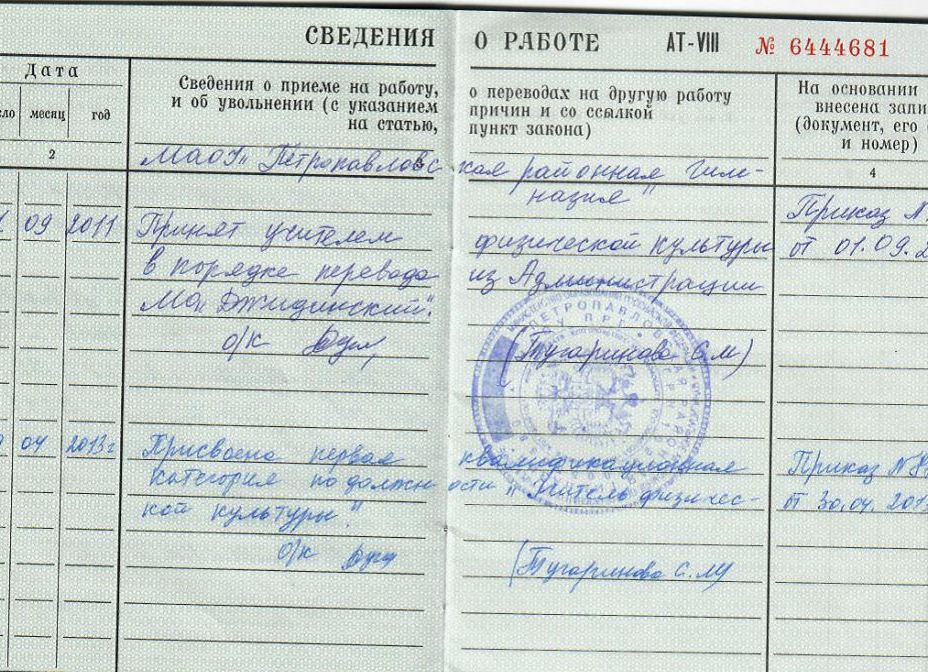 СВЕДЕНИЯ О РАБОТЕ АТ-VIII № 6444681
Дата
месяц год
Сведения о приеме на работу, о переводах на другую работу
и об увольнении (с указанием причин и со ссылкой
на статью, пункт закона)
На основании
внесена запи
(документ, его
и номер)
2 4
МАОУ "Петропавловская районная Гим-
назия"
09 2011 Принят учителем физической культуры Приказ №
в порядке перевода из Администрации от 01.09.2
МО "Джидинский".
о/к (Тугаринова С.М)
ПЕТРОПАВЛОВСКАЯ РАЙОН
04 2013г Присвоена первая квалификационная Приказ №
категория по должности "Учитель физичес- от 30.04.201
кой культуры".
о/к (Тугаринова С.М)